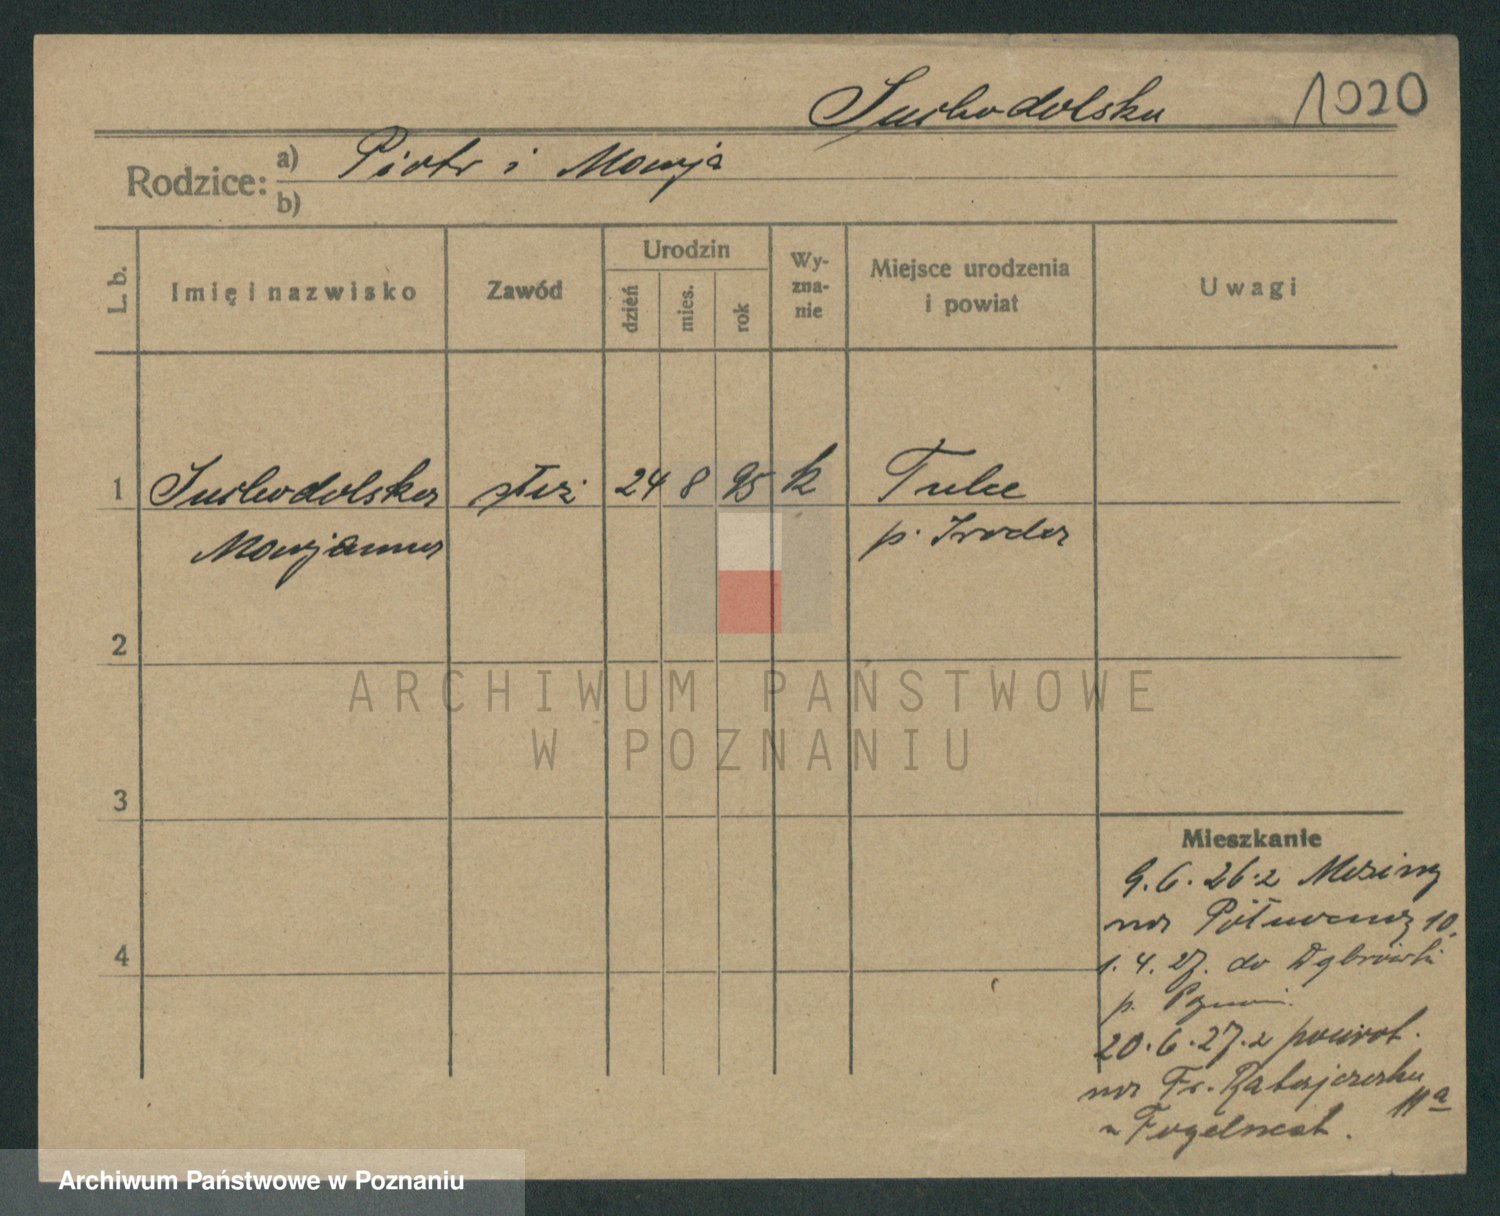 Suchodolska 1020
Rodzice: a) Piotr i Marja
b)
L. b. Imię i nazwisko Zawód Urodzin dzień mies. rok Wy-zna-nie Miejsce urodzenia i powiat Uwagi
1 Suchodolska służ 24 8 95 k Tulce
Marjanna p. Środa
2
ARCHIWUM PAŃSTWOWE
W POZNANIU
3
Mieszkanie
9.6.26 z
na 10.
4
1.4.27. do Dąbrówki
p. Poznań.
20.6.27. z powrot.
na Fr. Ratajczaka 11a
Archiwum Państwowe w Poznaniu